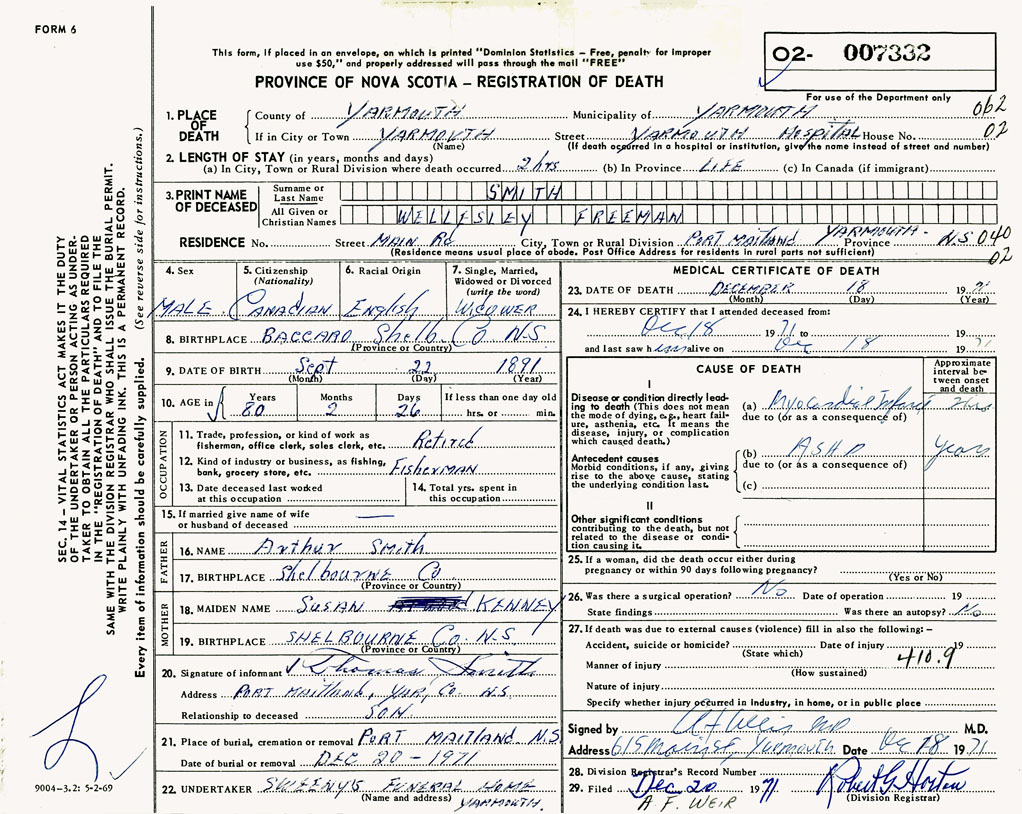 FORM 6
This form, if placed in an envelope, on which is printed "Dominion Statistics – Free, penalty for improper
use $50," and properly addressed will pass through the mail "FREE"
PROVINCE OF NOVA SCOTIA – REGISTRATION OF DEATH
02- 007332
For use of the Department only
062
02
1. PLACE OF DEATH
County of YARMOUTH Municipality of YARMOUTH
If in City or Town YARMOUTH Street YARMOUTH Hospital House No.
(Name) (If death occurred in a hospital or institution, give the name instead of street and number)
2. LENGTH OF STAY (in years, months and days)
(a) In City, Town or Rural Division where death occurred 2 hrs (b) In Province LIFE (c) In Canada (if immigrant)
3. PRINT NAME OF DECEASED
Surname or Last Name SMITH
All Given or Christian Names WELLESLEY FREEMAN
RESIDENCE No. Street MAIN Rd City, Town or Rural Division PORT MAITLAND YARMOUTH - Province N.S 040
02
(Residence means usual place of abode. Post Office Address for residents in rural parts not sufficient)
4. Sex MALE
5. Citizenship (Nationality) Canadian
6. Racial Origin English
7. Single, Married, Widowed or Divorced (write the word) Widower
8. BIRTHPLACE BACCARO Shelb. Co N.S
(Province or Country)
9. DATE OF BIRTH Sept 22 1891
(Month) (Day) (Year)
10. AGE in Years 80 Months 2 Days 26 If less than one day old hrs. or min.
OCCUPATION
11. Trade, profession, or kind of work as
fisherman, office clerk, sales clerk, etc. Retired
12. Kind of industry or business, as fishing,
bank, grocery store, etc. FISHERMAN
13. Date deceased last worked
at this occupation
14. Total yrs. spent in
this occupation
15. If married give name of wife
or husband of deceased —
FATHER
16. NAME Arthur Smith
17. BIRTHPLACE Shelbourne Co
(Province or Country)
MOTHER
18. MAIDEN NAME SUSAN KENNEY
19. BIRTHPLACE SHELBOURNE Co. N.S
(Province or Country)
20. Signature of informant Thomas Smith
Address PORT MAITLAND, YAR, Co. N.S.
Relationship to deceased SON
21. Place of burial, cremation or removal PORT MAITLAND N.S
Date of burial or removal DEC 20 - 1971
22. UNDERTAKER SWEENY'S FUNERAL HOME
(Name and address) YARMOUTH.
MEDICAL CERTIFICATE OF DEATH
23. DATE OF DEATH DECEMBER 18 19 71
(Month) (Day) (Year)
24. I HEREBY CERTIFY that I attended deceased from:
Dec 18 19 71 to 19
and last saw him alive on Dec 18 19 71
CAUSE OF DEATH
Approximate interval between onset and death
I
Disease or condition directly leading
to death (This does not mean
the mode of dying, e.g., heart failure,
asthenia, etc. It means the
disease, injury, or complication
which caused death.)
(a) Myocardial Infarct 2 hrs
due to (or as a consequence of)
Antecedent causes
Morbid conditions, if any, giving
rise to the above cause, stating
the underlying condition last.
(b) ASHD years
due to (or as a consequence of)
(c)
II
Other significant conditions
contributing to the death, but not
related to the disease or condition
causing it.
25. If a woman, did the death occur either during
pregnancy or within 90 days following pregnancy?
(Yes or No)
26. Was there a surgical operation? No Date of operation 19
State findings Was there an autopsy? No
27. If death was due to external causes (violence) fill in also the following: –
Accident, suicide or homicide? Date of injury 19
(State which) 410.9
Manner of injury
(How sustained)
Nature of injury
Specify whether injury occurred in industry, in home, or in public place
Signed by M.D.
Address 615 Main St, Yarmouth Date Dec 18 19 71
28. Division Registrar's Record Number
29. Filed Dec 20 19 71 Robert G Horton
A F. WEIR (Division Registrar)
SEC. 14 – VITAL STATISTICS ACT MAKES IT THE DUTY
OF THE UNDERTAKER OR PERSON ACTING AS UNDER-
TAKER TO OBTAIN ALL THE PARTICULARS REQUIRED
IN THE "REGISTRATION OF DEATH" AND TO FILE THE
SAME WITH THE DIVISION REGISTRAR WHO SHALL ISSUE THE BURIAL PERMIT.
WRITE PLAINLY WITH UNFADING INK. THIS IS A PERMANENT RECORD.
Every item of information should be carefully supplied. (See reverse side for instructions.)
9004-3.2: 5-2-69